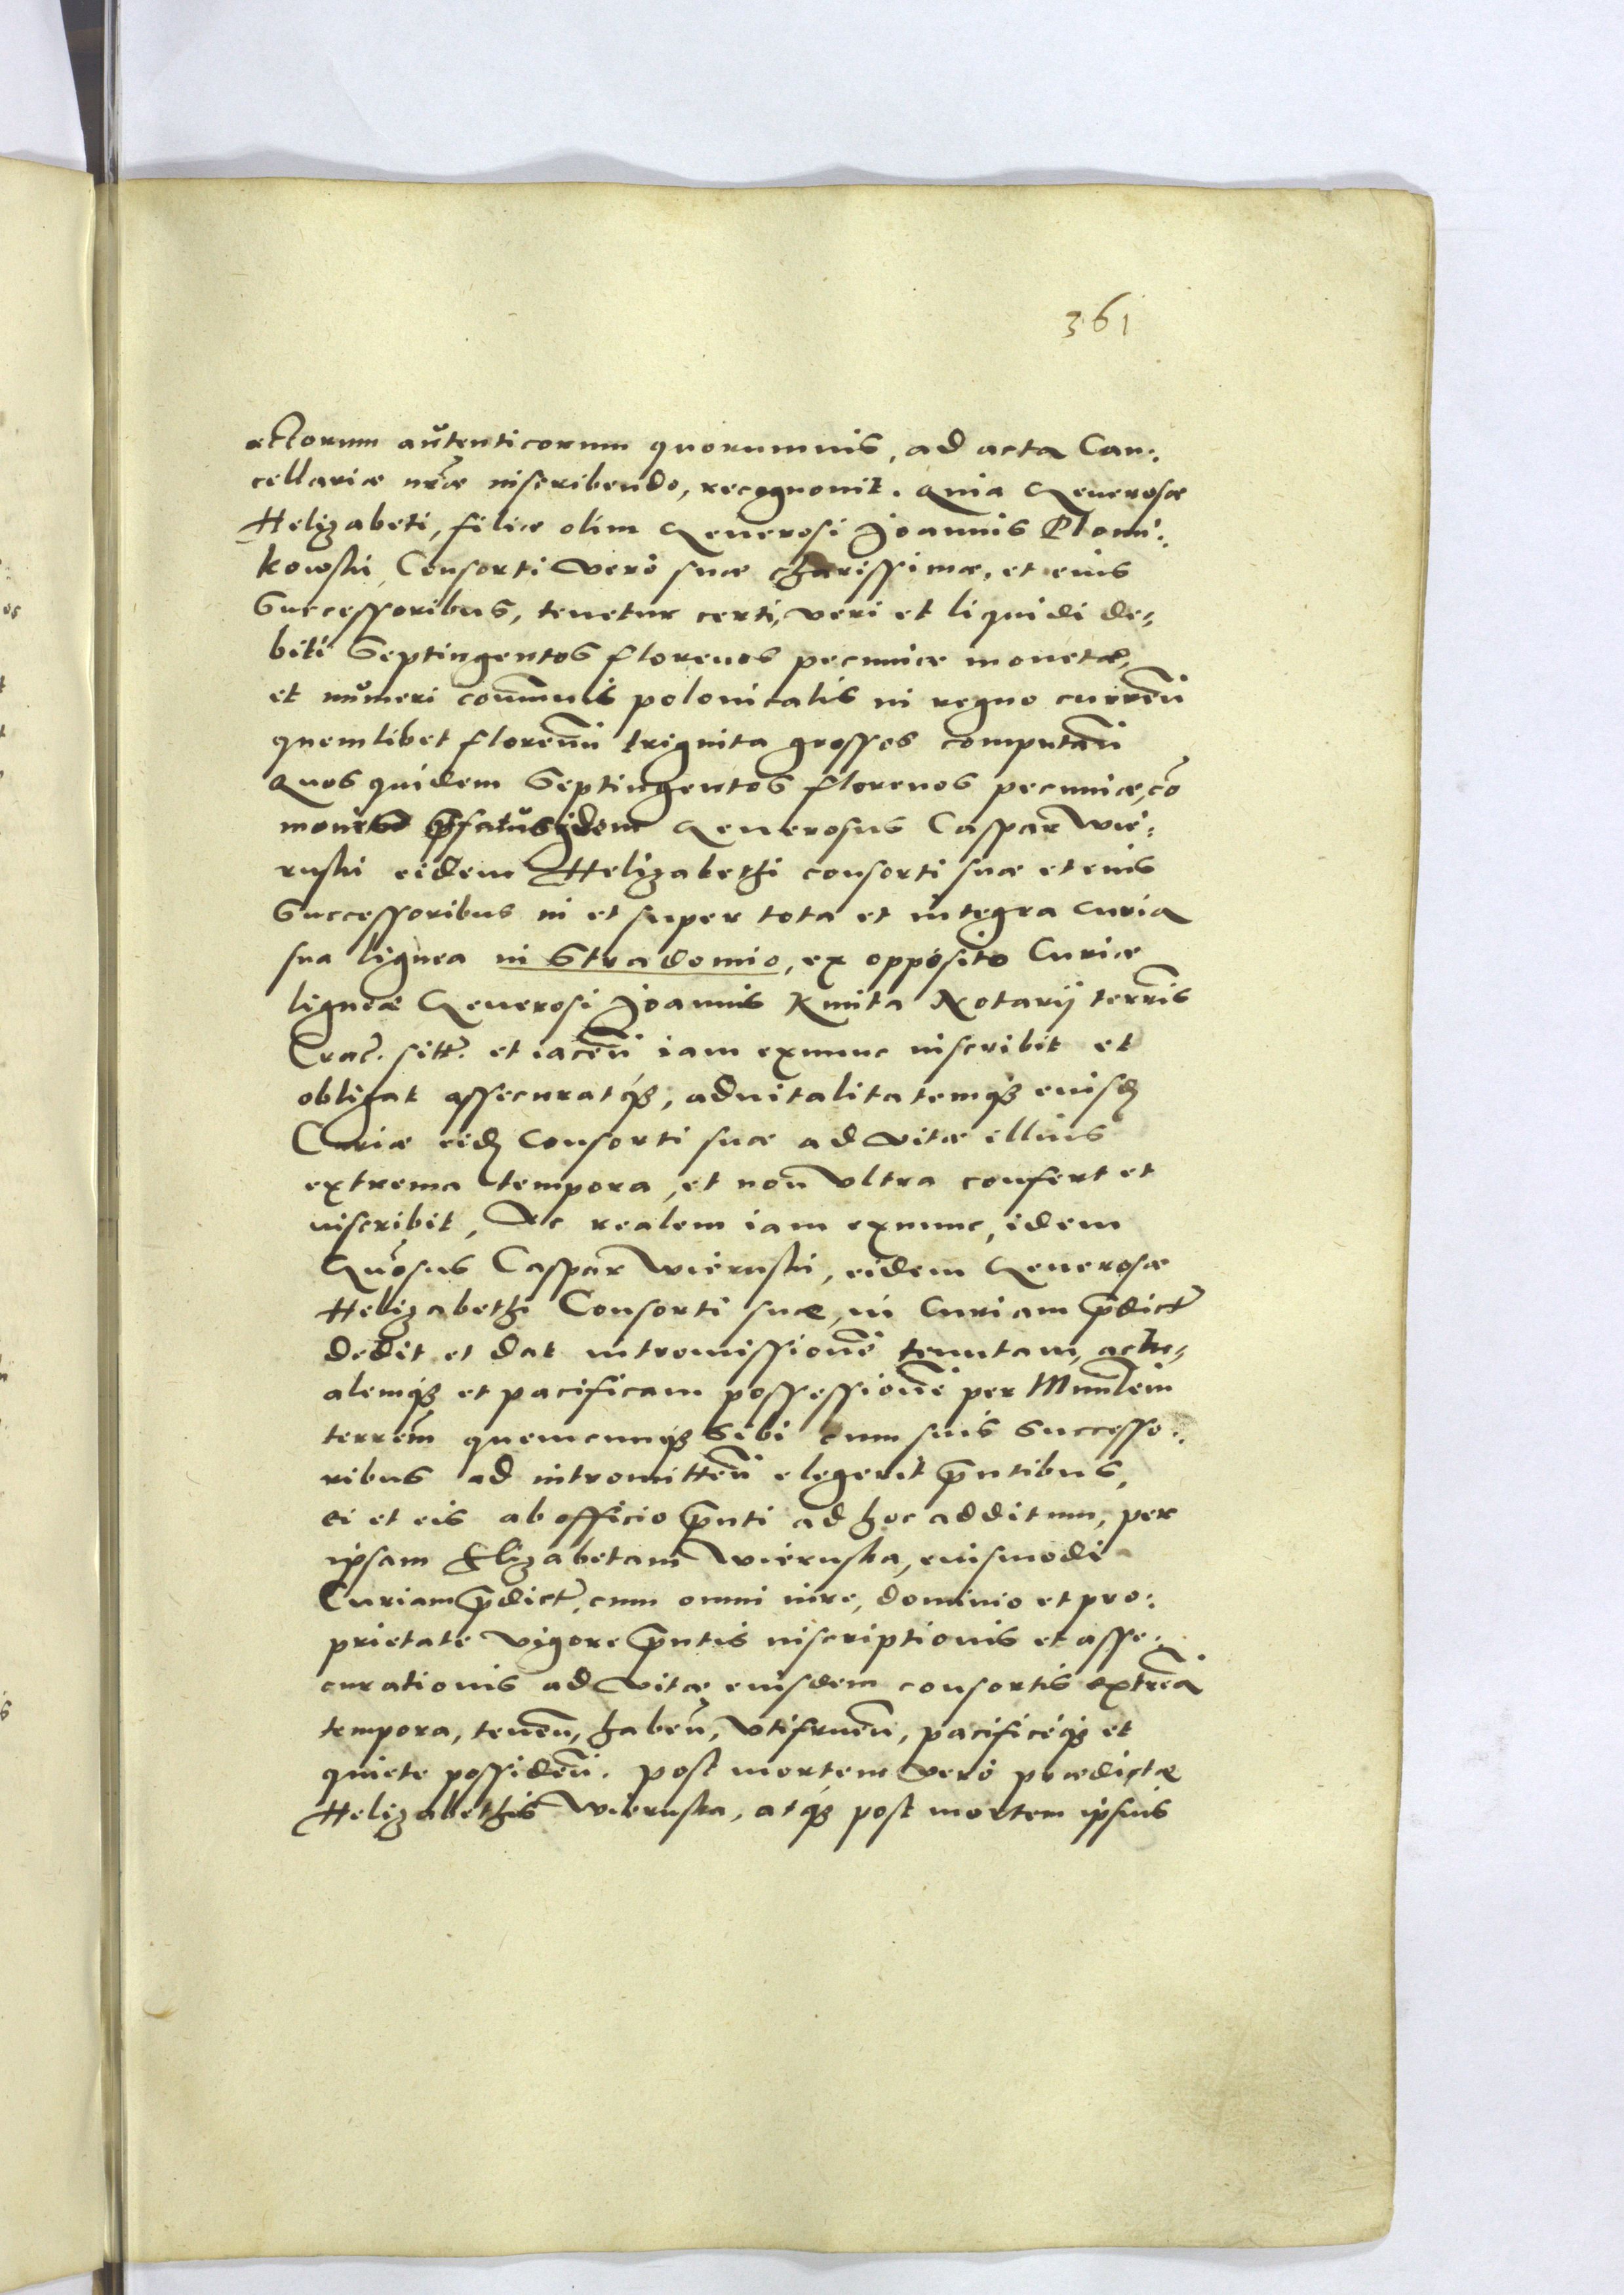 361
actorum autenticorum quorumuis, ad acta Can:
cellariæ nr̃æ inscribendo, recognouit. Quia Generosæ
Helizabeti, filiæ olim Generosi Joannis Plomi:
kowski Consorti vero suæ charissimæ, et eius
Successoribus, tenetur certi, veri et liquidi de:
biti Septingentos florenos pecuniæ monetæ,
et numeri com̃unis polonicalis in regno curren̄
quemlibet floren̄u triginta grossos computan̄
Quos quidem Septingentos florenos pecuniæ, et
p̃fatus idem Generosus Caspar Wie:
ruski eidem Helizabethi consorti suæ et eius
Successoribus in et super tota et integra curia
sua lignea in Stradomio, ex opposito Curiæ
ligneæ Generosi Joannis Kmita Notarij terr̃is
Crac̃. sitt̃. et iacen̄ iam exnunc inscribit et
obligat assecuratq̃, aduitalitatemq̃ eiusd̃
Curiæ eid̃ Consorti suæ ad vitæ illius
extrema tempora, et non vltra confert et
inscribit, Ac realem iam exnunc, idem
Gñosus Caspar Wieruski, eidem Generosæ
Helizabethi Consorti suæ, in Curiam p̃dict̃
dedit et dat intromissionē tenutam, actu:
alemq̃ et pacificam possessionē per Minr̃lem
terrẽm quemcunq̃ Sibi cum suis Successo:
ribus ad intromitten̄ elegerit p̃ntibus,
ei et eis ab officio p̃nti ad hoc additum, per
ipsam Elizabetam Wieruska, eiusmodi
Curiam p̃dict̃, cum omni iure, dominio et pro:
prietate vigore p̃ntis inscriptionis et asse:
curationis ad vitæ eiusdem consortis extrēa
tempora, tenen̄, haben̄, vtifruen̄, pacificeq̃ et
quiete possiden̄. post mortem vero prædictæ
Helizabethis Wieruska, atq̃ post mortem ipsius